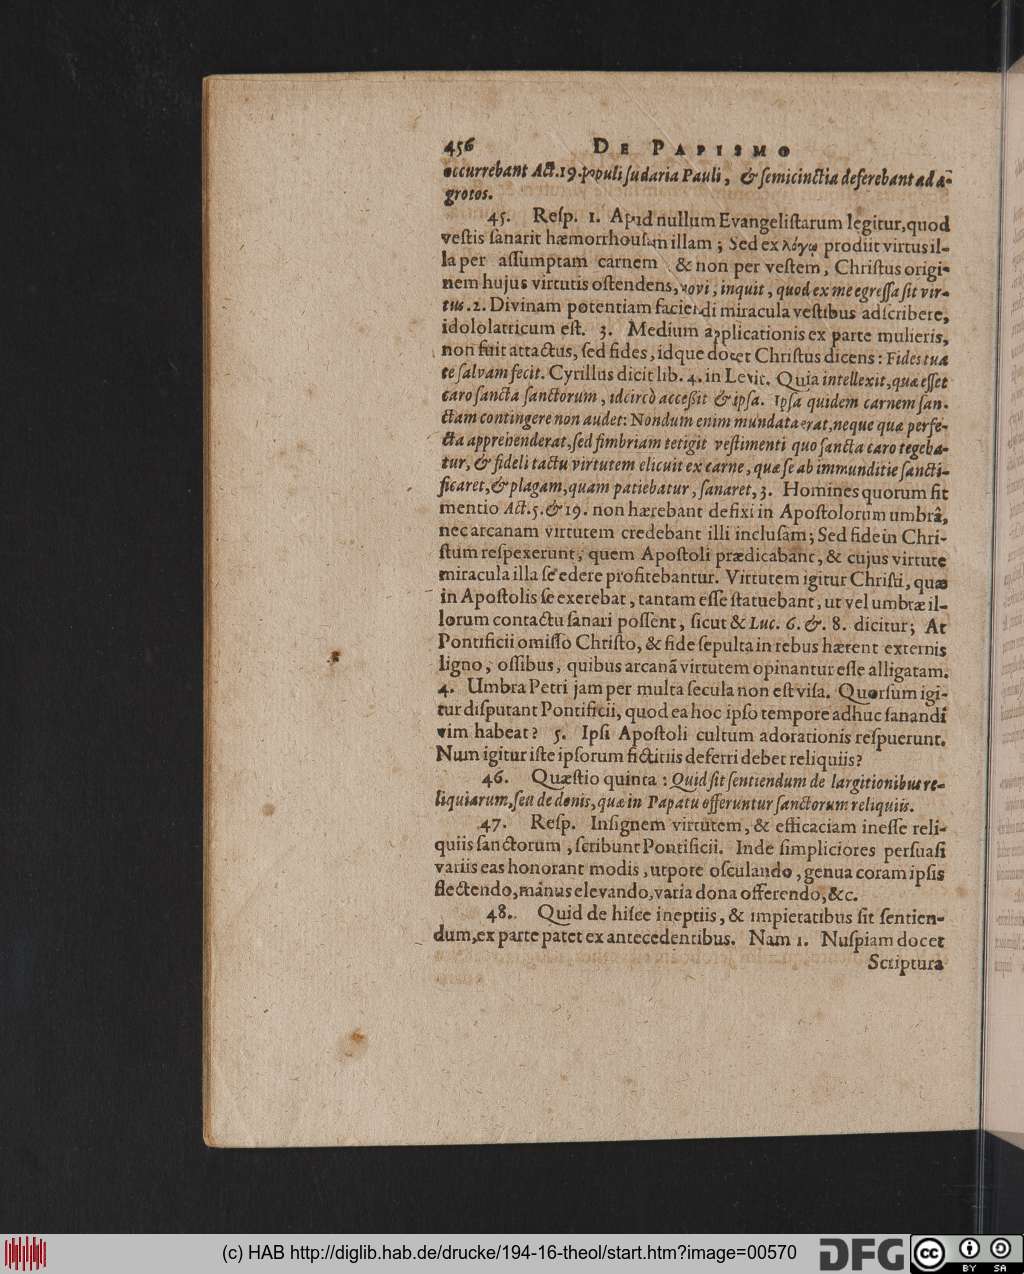 456 DE PAPISMO
occurrebant Act.19.populi ſudaria Pauli, & ſemicinctia deferebant ad æ-
grotos.
45. Reſp. 1. Apud nullum Evangeliſtarum legitur, quod
veſtis ſanarit hæmorrhouſam illam; Sed ex λόγῳ prodiit virtus il-
la per aſſumptam carnem & non per veſtem, Chriſtus origi-
nem hujus virtutis oſtendens, novi, inquit, quod ex me egreſſa ſit vir-
tus. 2. Divinam potentiam faciendi miracula veſtibus adſcribere,
idololatricum eſt. 3. Medium applicationis ex parte mulieris,
non fuit attactus, ſed fides, idque docet Chriſtus dicens: Fides tua
te ſalvam fecit. Cyrillus dicit lib. 4. in Levit. Quia intellexit, quæ eſſet
caro ſancta ſanctorum, idcircò acceßit & ipſa. Ipſa quidem carnem ſan-
ctam contingere non audet: Nondum enim mundata erat, neque quæ perfe-
cta apprehenderat, ſed fimbriam tetigit veſtimenti quo ſancta caro tegeba-
tur, & fideli tactu virtutem elicuit ex carne, quæ ſe ab immunditie ſancti-
ficaret, & plagam, quam patiebatur, ſanaret, 3. Homines quorum fit
mentio Act.5.&19. non hærebant defixi in Apoſtolorum umbrâ,
nec arcanam virtutem credebant illi incluſam; Sed fide in Chri-
ſtum reſpexerunt, quem Apoſtoli prædicabant, & cujus virtute
miracula illa ſe edere profitebantur. Virtutem igitur Chriſti, quæ
in Apoſtolis ſe exerebat, tantam eſſe ſtatuebant, ut vel umbræ il-
lorum contactu ſanari poſſent, ſicut & Luc. 6. &. 8. dicitur; At
Pontificii omiſſo Chriſto, & fide ſepulta in rebus hærent externis
ligno, oſſibus, quibus arcanã virtutem opinantur eſſe alligatam.
4. Umbra Petri jam per multa ſecula non eſt viſa. Quorſum igi-
tur diſputant Pontificii, quod ea hoc ipſo tempore adhuc ſanandi
vim habeat? 5. Ipſi Apoſtoli cultum adorationis reſpuerunt.
Num igitur iſte ipſorum fictitiis deferri debet reliquiis?
46. Quæſtio quinta: Quid ſit ſentiendum de largitionibus re-
liquiarum, ſeu de donis, quæ in Papatu offeruntur ſanctorum reliquiis.
47. Reſp. Inſignem virtutem, & efficaciam ineſſe reli-
quiis ſanctorum, ſcribunt Pontificii. Inde ſimpliciores perſuaſi
variis eas honorant modis, utpote oſculando, genua coram ipſis
flectendo, manus elevando, varia dona offerendo, &c.
48. Quid de hiſce ineptiis, & impietatibus ſit ſentien-
dum, ex parte patet ex antecedentibus. Nam 1. Nuſpiam docet
Scriptura
(c) HAB http://diglib.hab.de/drucke/194-16-theol/start.htm?image=00570
DFG
cc BY SA